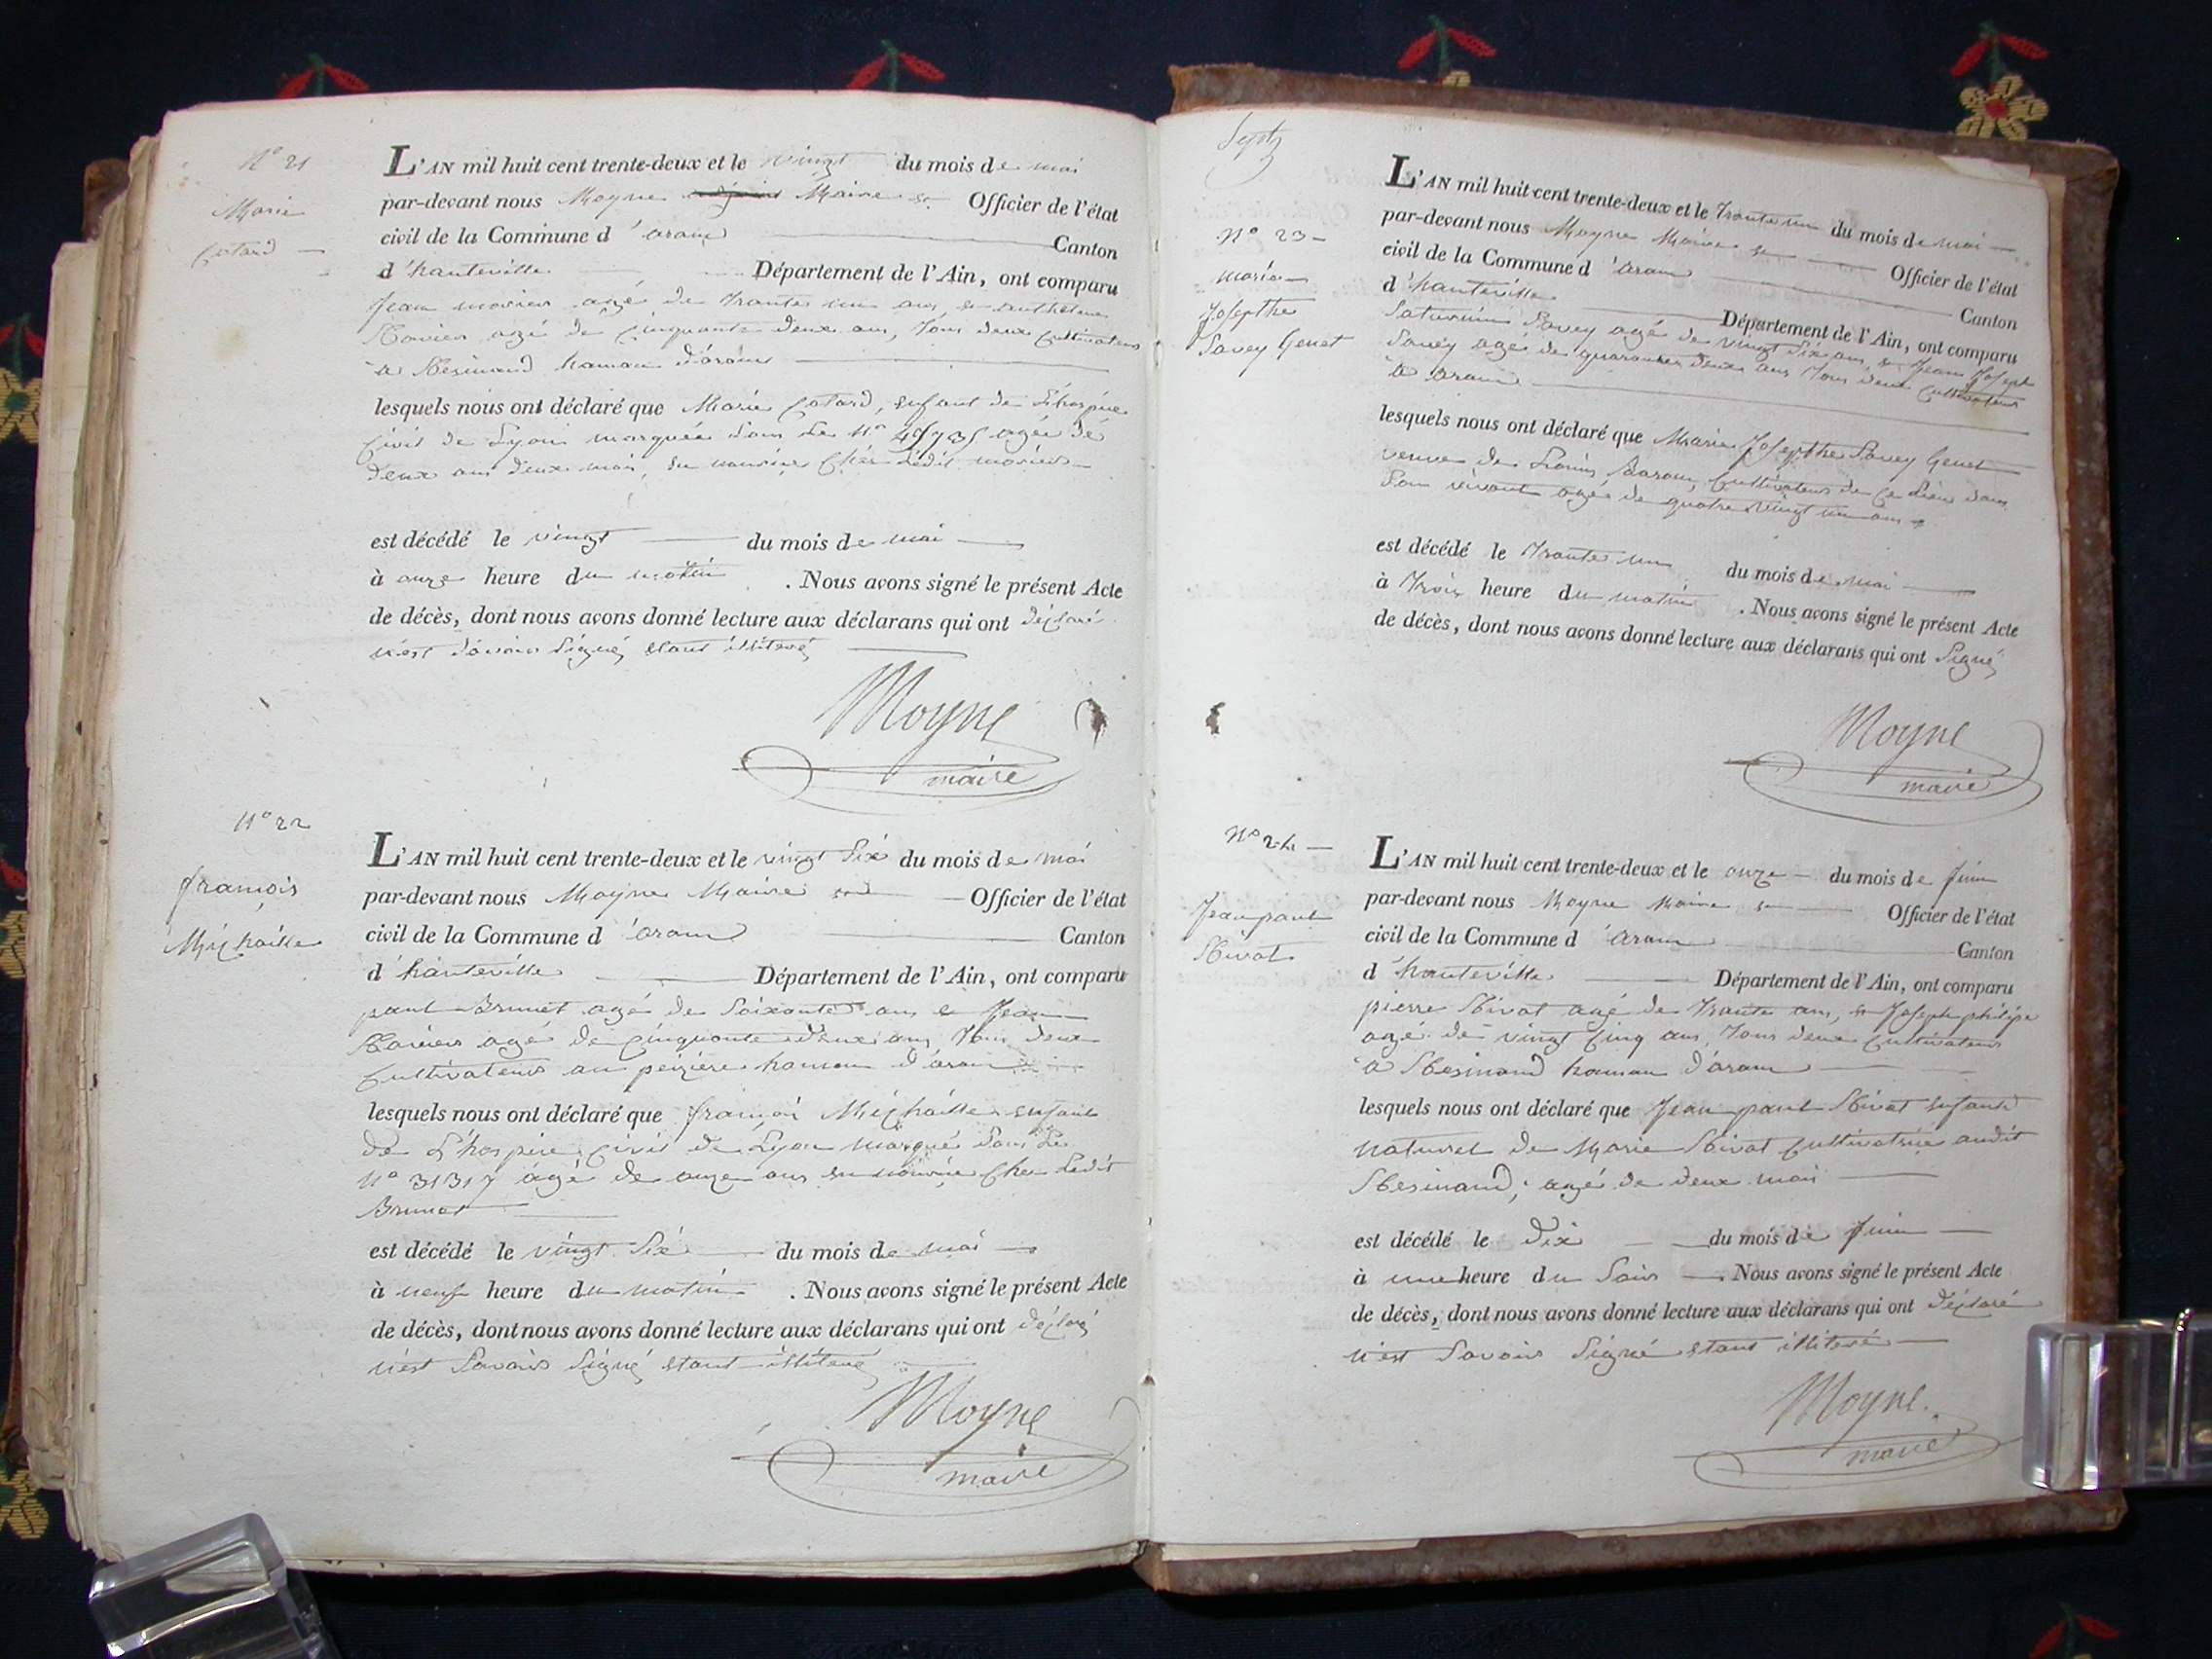 N° 21
Marie
Cotard
L'AN mil huit cent trente-deux et le vingt du mois de mai
par-devant nous Moyne Maire et Officier de l'état
civil de la Commune d'aranc Canton
d'hauteville Département de l'Ain, ont comparu
Jean agé de trante un ans, et anthelme
agé de cinquante deux ans, tous deux cultivateurs
à hamau d'aranc
lesquels nous ont déclaré que Marie Cotard, enfant de L'hospice
Civil de Lyon marquée sous Le N° agée de
deux ans deux mois, en nourice chez Ledit
est décédé le vingt du mois de mai
à onze heure du matin . Nous avons signé le présent Acte
de décès, dont nous avons donné lecture aux déclarans qui ont déclaré
n'est savoir signé, etant illiteré
Moyne
maire
N° 22
françois
Michaille
L'AN mil huit cent trente-deux et le vingt six du mois de mai
par-devant nous Moyne Maire et Officier de l'état
civil de la Commune d'aranc Canton
d'hauteville Département de l'Ain, ont comparu
paul Brunet agé de soixante ans et Jean
agé de cinquante deux ans, tous deux
cultivateurs au hamau d'aranc
lesquels nous ont déclaré que françois Michaille enfant
de L'hospice civil de Lyon marqué sous Le
N° 31317 agé de onze ans en nourice chez Ledit
Brunet
est décédé le vingt six du mois de mai
à neuf heure du matin . Nous avons signé le présent Acte
de décès, dont nous avons donné lecture aux déclarans qui ont déclaré
n'est savoir signé, etant illiteré
Moyne
maire
Sept
N° 23
marie
Josepthe
Savey Genet
L'AN mil huit cent trente-deux et le trante un du mois de mai
par-devant nous Moyne Maire et Officier de l'état
civil de la Commune d'aranc Canton
d'hauteville Département de l'Ain, ont comparu
Saturnin Savey agé de vingt six ans, et Jean Josept
Savey agé de quarantes deux ans tous deux cultivateurs
à aranc
lesquels nous ont déclaré que Marie Josepthe Savey Genet
veuve de Louis cultivateur de ce Lieu dans
son vivant agée de quatre vingt un ans
est décédé le trante un du mois de mai
à trois heure du matin . Nous avons signé le présent Acte
de décès, dont nous avons donné lecture aux déclarans qui ont signé
Moyne
maire
N° 24
Jean paul
Nivat
L'AN mil huit cent trente-deux et le onze du mois de juin
par-devant nous Moyne Maire et Officier de l'état
civil de la Commune d'aranc Canton
d'hauteville Département de l'Ain, ont comparu
pierre Nivat agé de trante ans, et Joseph philipe
agé de vingt cinq ans, tous deux cultivateurs
à hamau d'aranc
lesquels nous ont déclaré que Jean paul Nivat enfant
naturel de Marie Nivat cultivatrice audit
agé de deux mois
est décédé le dix du mois de juin
à une heure du soir . Nous avons signé le présent Acte
de décès, dont nous avons donné lecture aux déclarans qui ont déclaré
n'est savoir signé etant illiteré
Moyne
maire